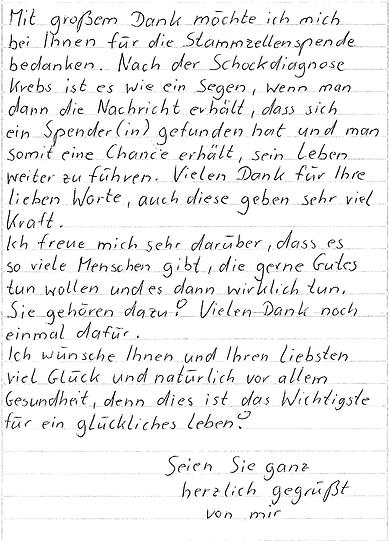 Mit großem Dank möchte ich mich
bei Ihnen für die Stammzellenspende
bedanken. Nach der Schockdiagnose
Krebs ist es wie ein Segen, wenn man
dann die Nachricht erhält, dass sich
ein Spender(in) gefunden hat und man
somit eine Chance erhält, sein Leben
weiter zu führen. Vielen Dank für Ihre
lieben Worte, auch diese geben sehr viel
Kraft.
Ich freue mich sehr darüber, dass es
so viele Menschen gibt, die gerne Gutes
tun wollen und es dann wirklich tun.
Sie gehören dazu! Vielen Dank noch
einmal dafür.
Ich wünsche Ihnen und Ihren liebsten
viel Glück und natürlich vor allem
Gesundheit, denn dies ist das Wichtigste
für ein glückliches leben!
Seien Sie ganz
herzlich gegrüßt
von mir